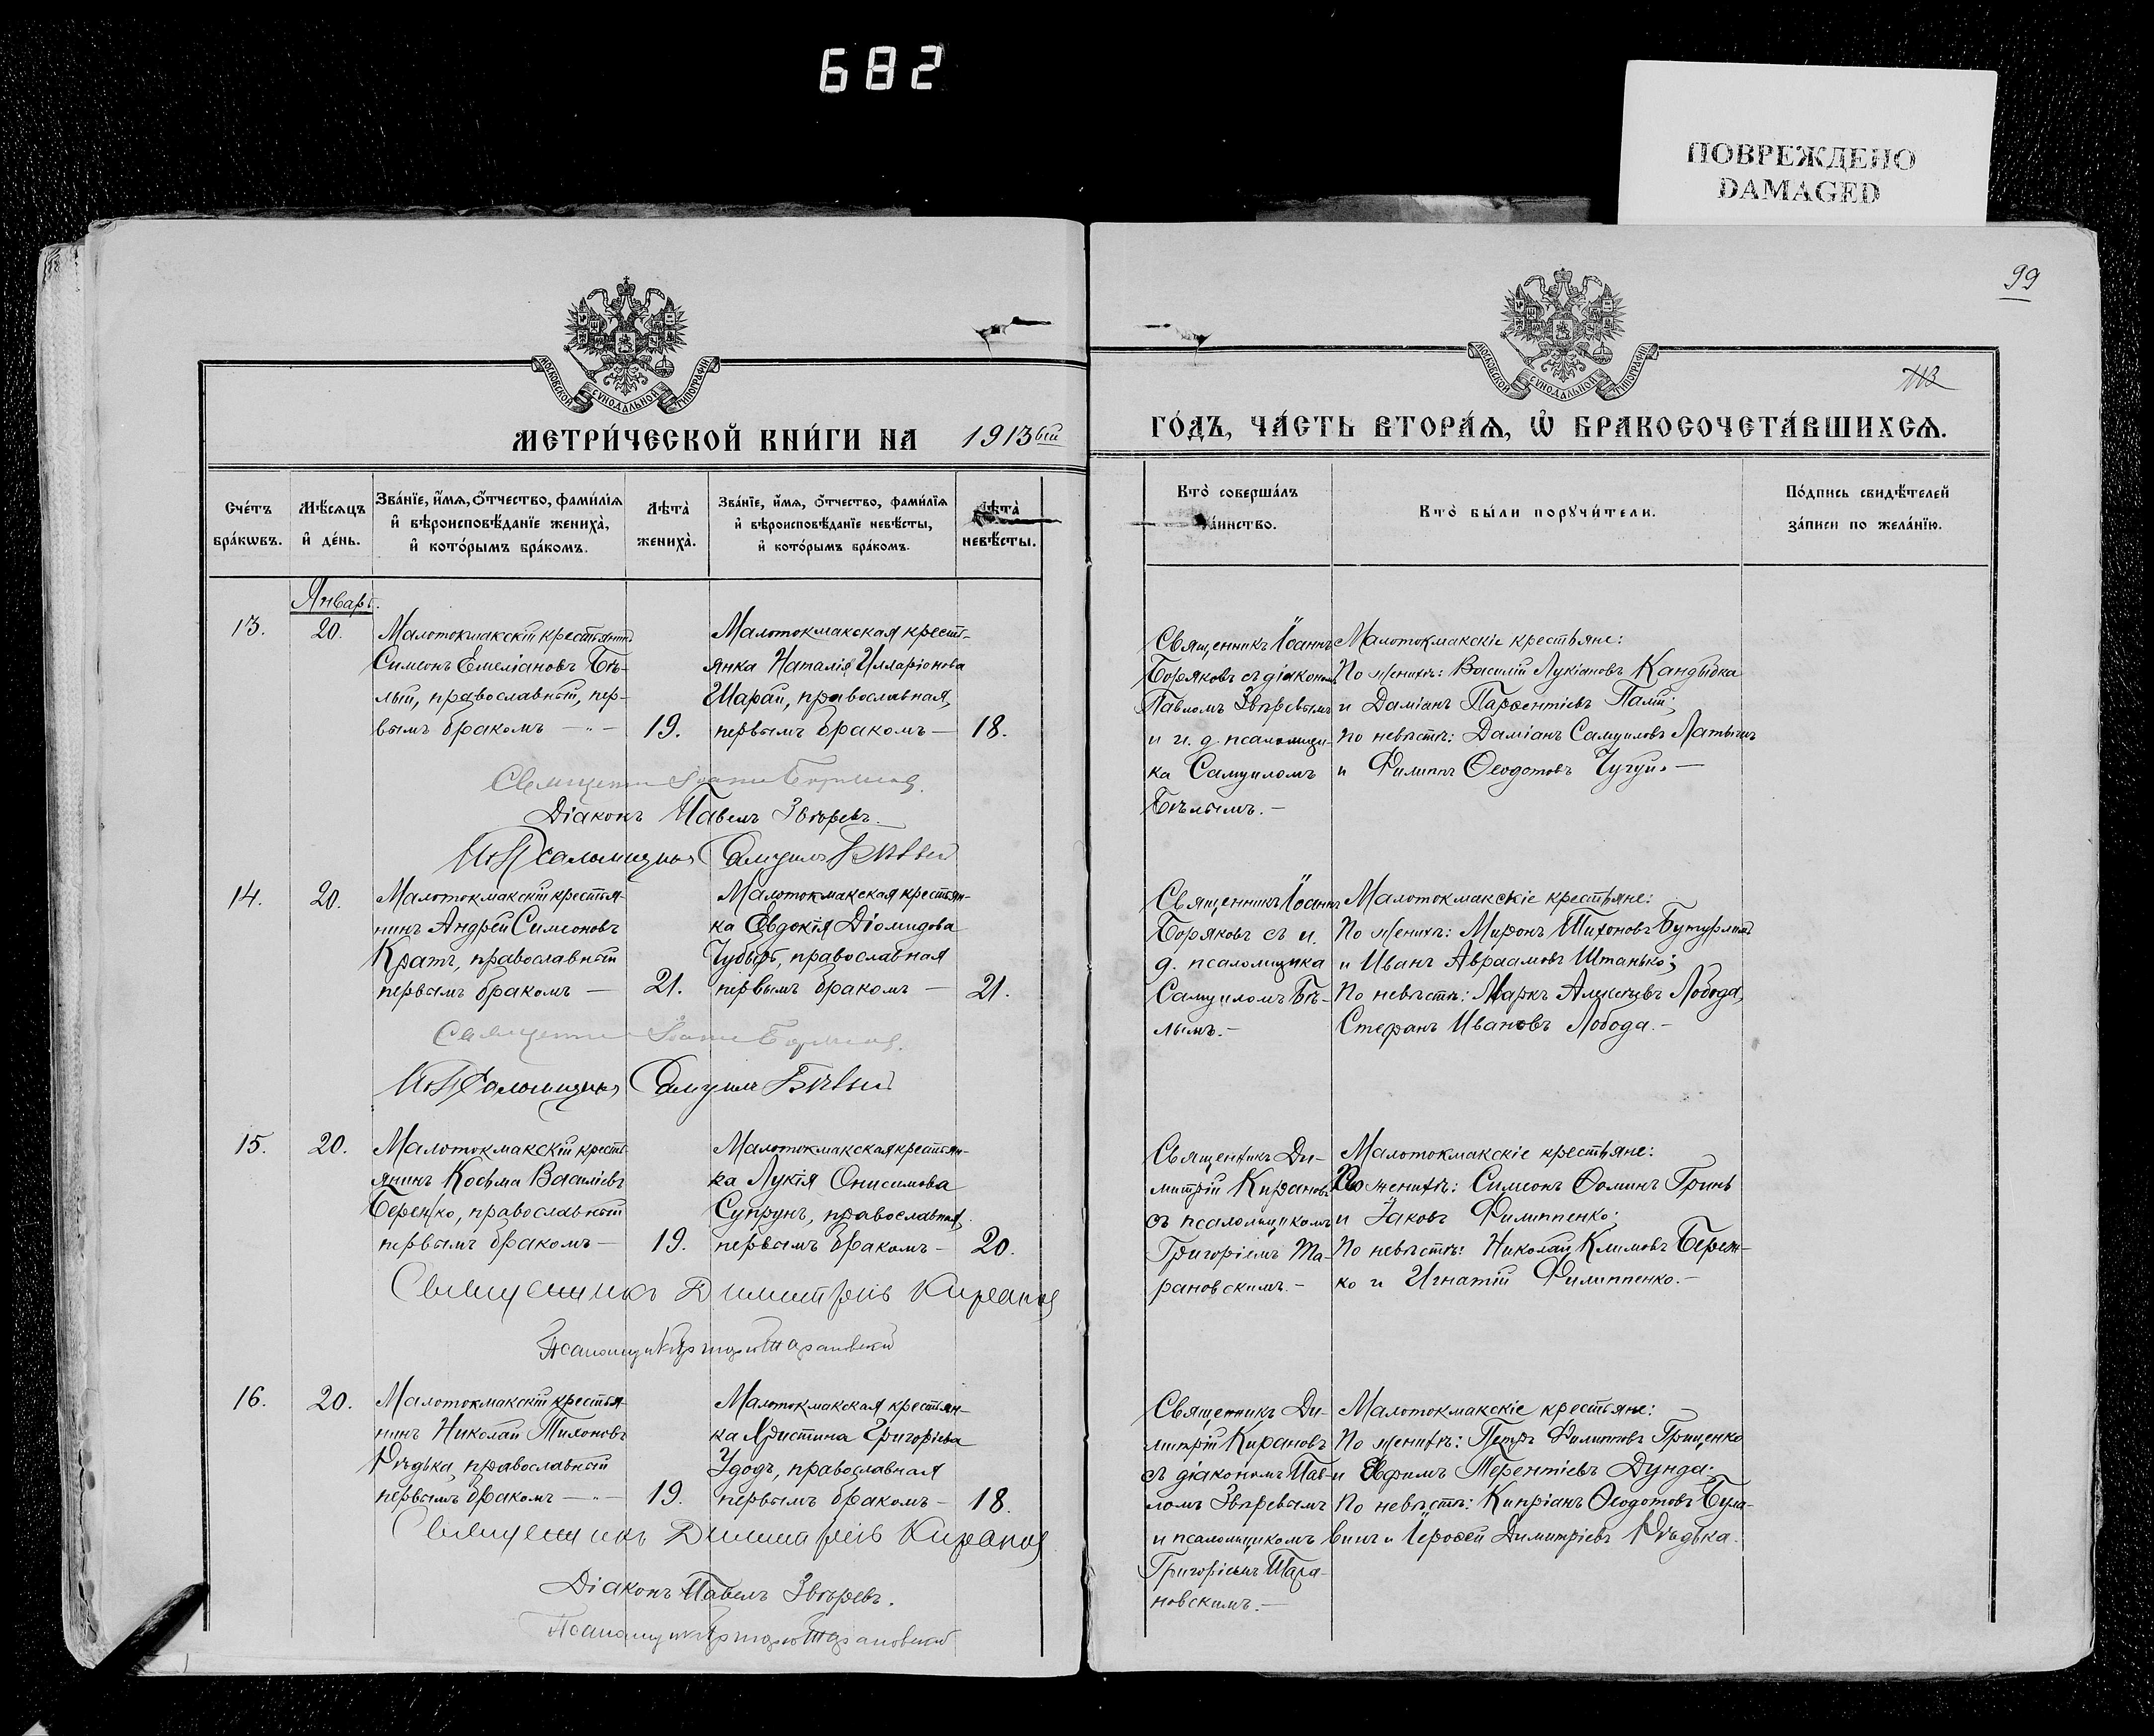 682
ПОВРЕЖДЕНО
DAMAGED
99
113
МОСКОВСКОЙ СУНОДАЛЬНОЙ ТИПОГРАФІИ
МОСКОВСКОЙ СУНОДАЛЬНОЙ ТИПОГРАФІИ
МЕТРИ́ЧЕСКОЙ КНИ́ГИ НА 1913ый
ГО́ДЪ, ЧА́СТЬ ВТОРА́Ѧ, Ѡ БРАКОСОЧЕТА́ВШИХСѦ.
Сче́тъ
бра́кѡвъ.
Мѣ́сѧцъ
и҆ де́нь.
Зва́нїе, и҆́мѧ, ѻ҆́тчество, фами́лїѧ
и҆ вѣроисповѣ́данїе жениха̀,
и҆ кото́рымъ бра́комъ.
Лѣта̀
жениха̀.
Зва́нїе, и҆́мѧ, ѻ҆́тчество, фами́лїѧ
и҆ вѣроисповѣ́данїе невѣ́сты,
и҆ кото́рымъ бра́комъ.
Лѣта̀
невѣ́сты.
Кто̀ соверша́лъ
та́инство.
Кто̀ бы́ли порꙋчи́тели.
По́дпись свидѣ́телей
за́писи по жела́нїю.
Январь.
13.
20.
Малотокмакскій крестьянинъ
Симеонъ Емеліановъ Бѣ-
лый, православный, пер-
вымъ бракомъ —
19.
Малотокмакская кресть-
янка Наталія Илларіонова
Шарай, православная,
первымъ бракомъ —
18.
Священникъ Іоаннъ
Боряковъ съ діакономъ
Павломъ Звѣревымъ
и и. д. псаломщи-
ка Самуиломъ
Бѣлымъ. —
Малотокмакскіе крестьяне:
По женихѣ: Василій Лукіановъ Кандыбка
и Даміанъ Парѳентіевъ Палій;
по невѣстѣ: Даміанъ Самуиловъ Латышъ
и Филиппъ Ѳеодотовъ Чугуй. —
Священникъ Іоаннъ Боряковъ.
Діаконъ Павелъ Звѣревъ.
И д Псаломщика Самуилъ Бѣлый
14.
20.
Малотокмакскій крестья-
нинъ Андрей Симеоновъ
Кратъ, православный
первымъ бракомъ —
21.
Малотокмакская крестьян-
ка Евдокія Діомидова
Чубырь, православная
первымъ бракомъ —
21.
Священникъ Іоаннъ
Боряковъ съ и.
д. псаломщика
Самуиломъ Бѣ-
лымъ. —
Малотокмакскіе крестьяне:
По женихѣ: Миронъ Тихоновъ Бутурлимъ
и Иванъ Авраамовъ Штанько;
По невѣстѣ: Маркъ Алексѣевъ Лобода,
Стефанъ Ивановъ Лобода. —
Священникъ Іоаннъ Боряковъ.
И д Псаломщика Самуилъ Бѣлый
15.
20.
Малотокмакскій кресть-
янинъ Косьма Василіевъ
Беренко, православный
первымъ бракомъ —
19.
Малотокмакская крестьян-
ка Лукія Онисимова
Супрунъ, православная,
первымъ бракомъ —
20.
Священникъ Ди-
митрій Кирановъ
съ псаломщикомъ
Григоріемъ Та-
рановскимъ. —
Малотокмакскіе крестьяне:
По женихѣ: Симеонъ Ѳоминъ Гринь
и Іаковъ Филиппенко;
По невѣстѣ: Николай Климовъ Береж-
ко и Игнатій Филиппенко. —
Священникъ Димитрій Кирановъ
Псаломщикъ Григорій Тарановскій
16.
20.
Малотокмакскій крестья-
нинъ Николай Тихоновъ
Рѣдька, православный
первымъ бракомъ —
19.
Малотокмакская крестьян-
ка Христина Григоріева
Удодъ, православная
первымъ бракомъ —
18.
Священникъ Ди-
митрій Кирановъ
съ діакономъ Пав-
ломъ Звѣревымъ
и псаломщикомъ
Григоріемъ Тара-
новскимъ. —
Малотокмакскіе крестьяне:
По женихѣ: Петръ Филипповъ Гриценко
и Евфимъ Терентіевъ Дунда;
По невѣстѣ: Кипріанъ Ѳеодотовъ Була-
винъ и Іероѳей Димитріевъ Рѣдька.
Священникъ Димитрій Кирановъ
Діаконъ Павелъ Звѣревъ.
Псаломщикъ Григорій Тарановскій